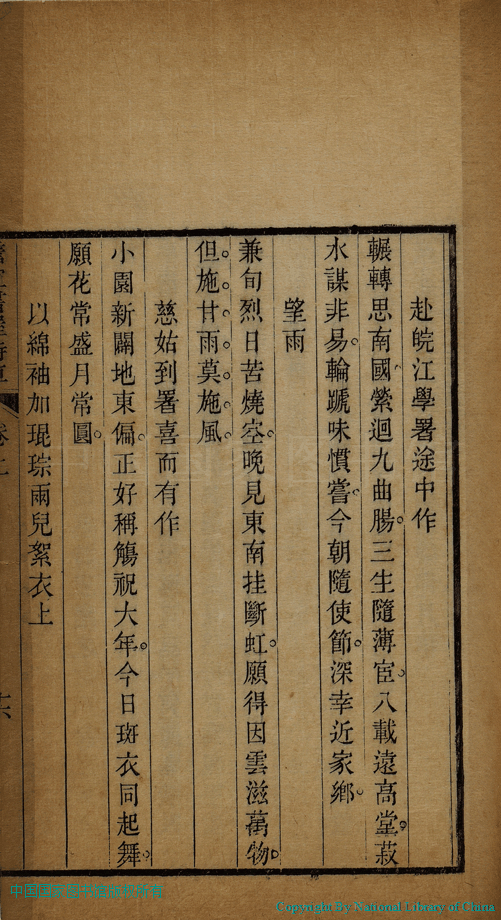 赴皖江學署途中作
輾轉思南國。縈迴九曲腸。三生隨薄宦。八載遠高堂。菽
水謀非易。輪蹏味慣嘗。今朝隨使節。深幸近家鄉。
望雨
兼旬烈日苦燒空。晚見東南挂斷虹。願得因雲滋萬物。
但施甘雨莫施風。
慈姑到署喜而有作
小園新闢地東偏。正好稱觴祝大年。今日斑衣同起舞。
願花常盛月常圓。
以綿袖加琨琮兩兒絮衣上
Copyright By National Library of China